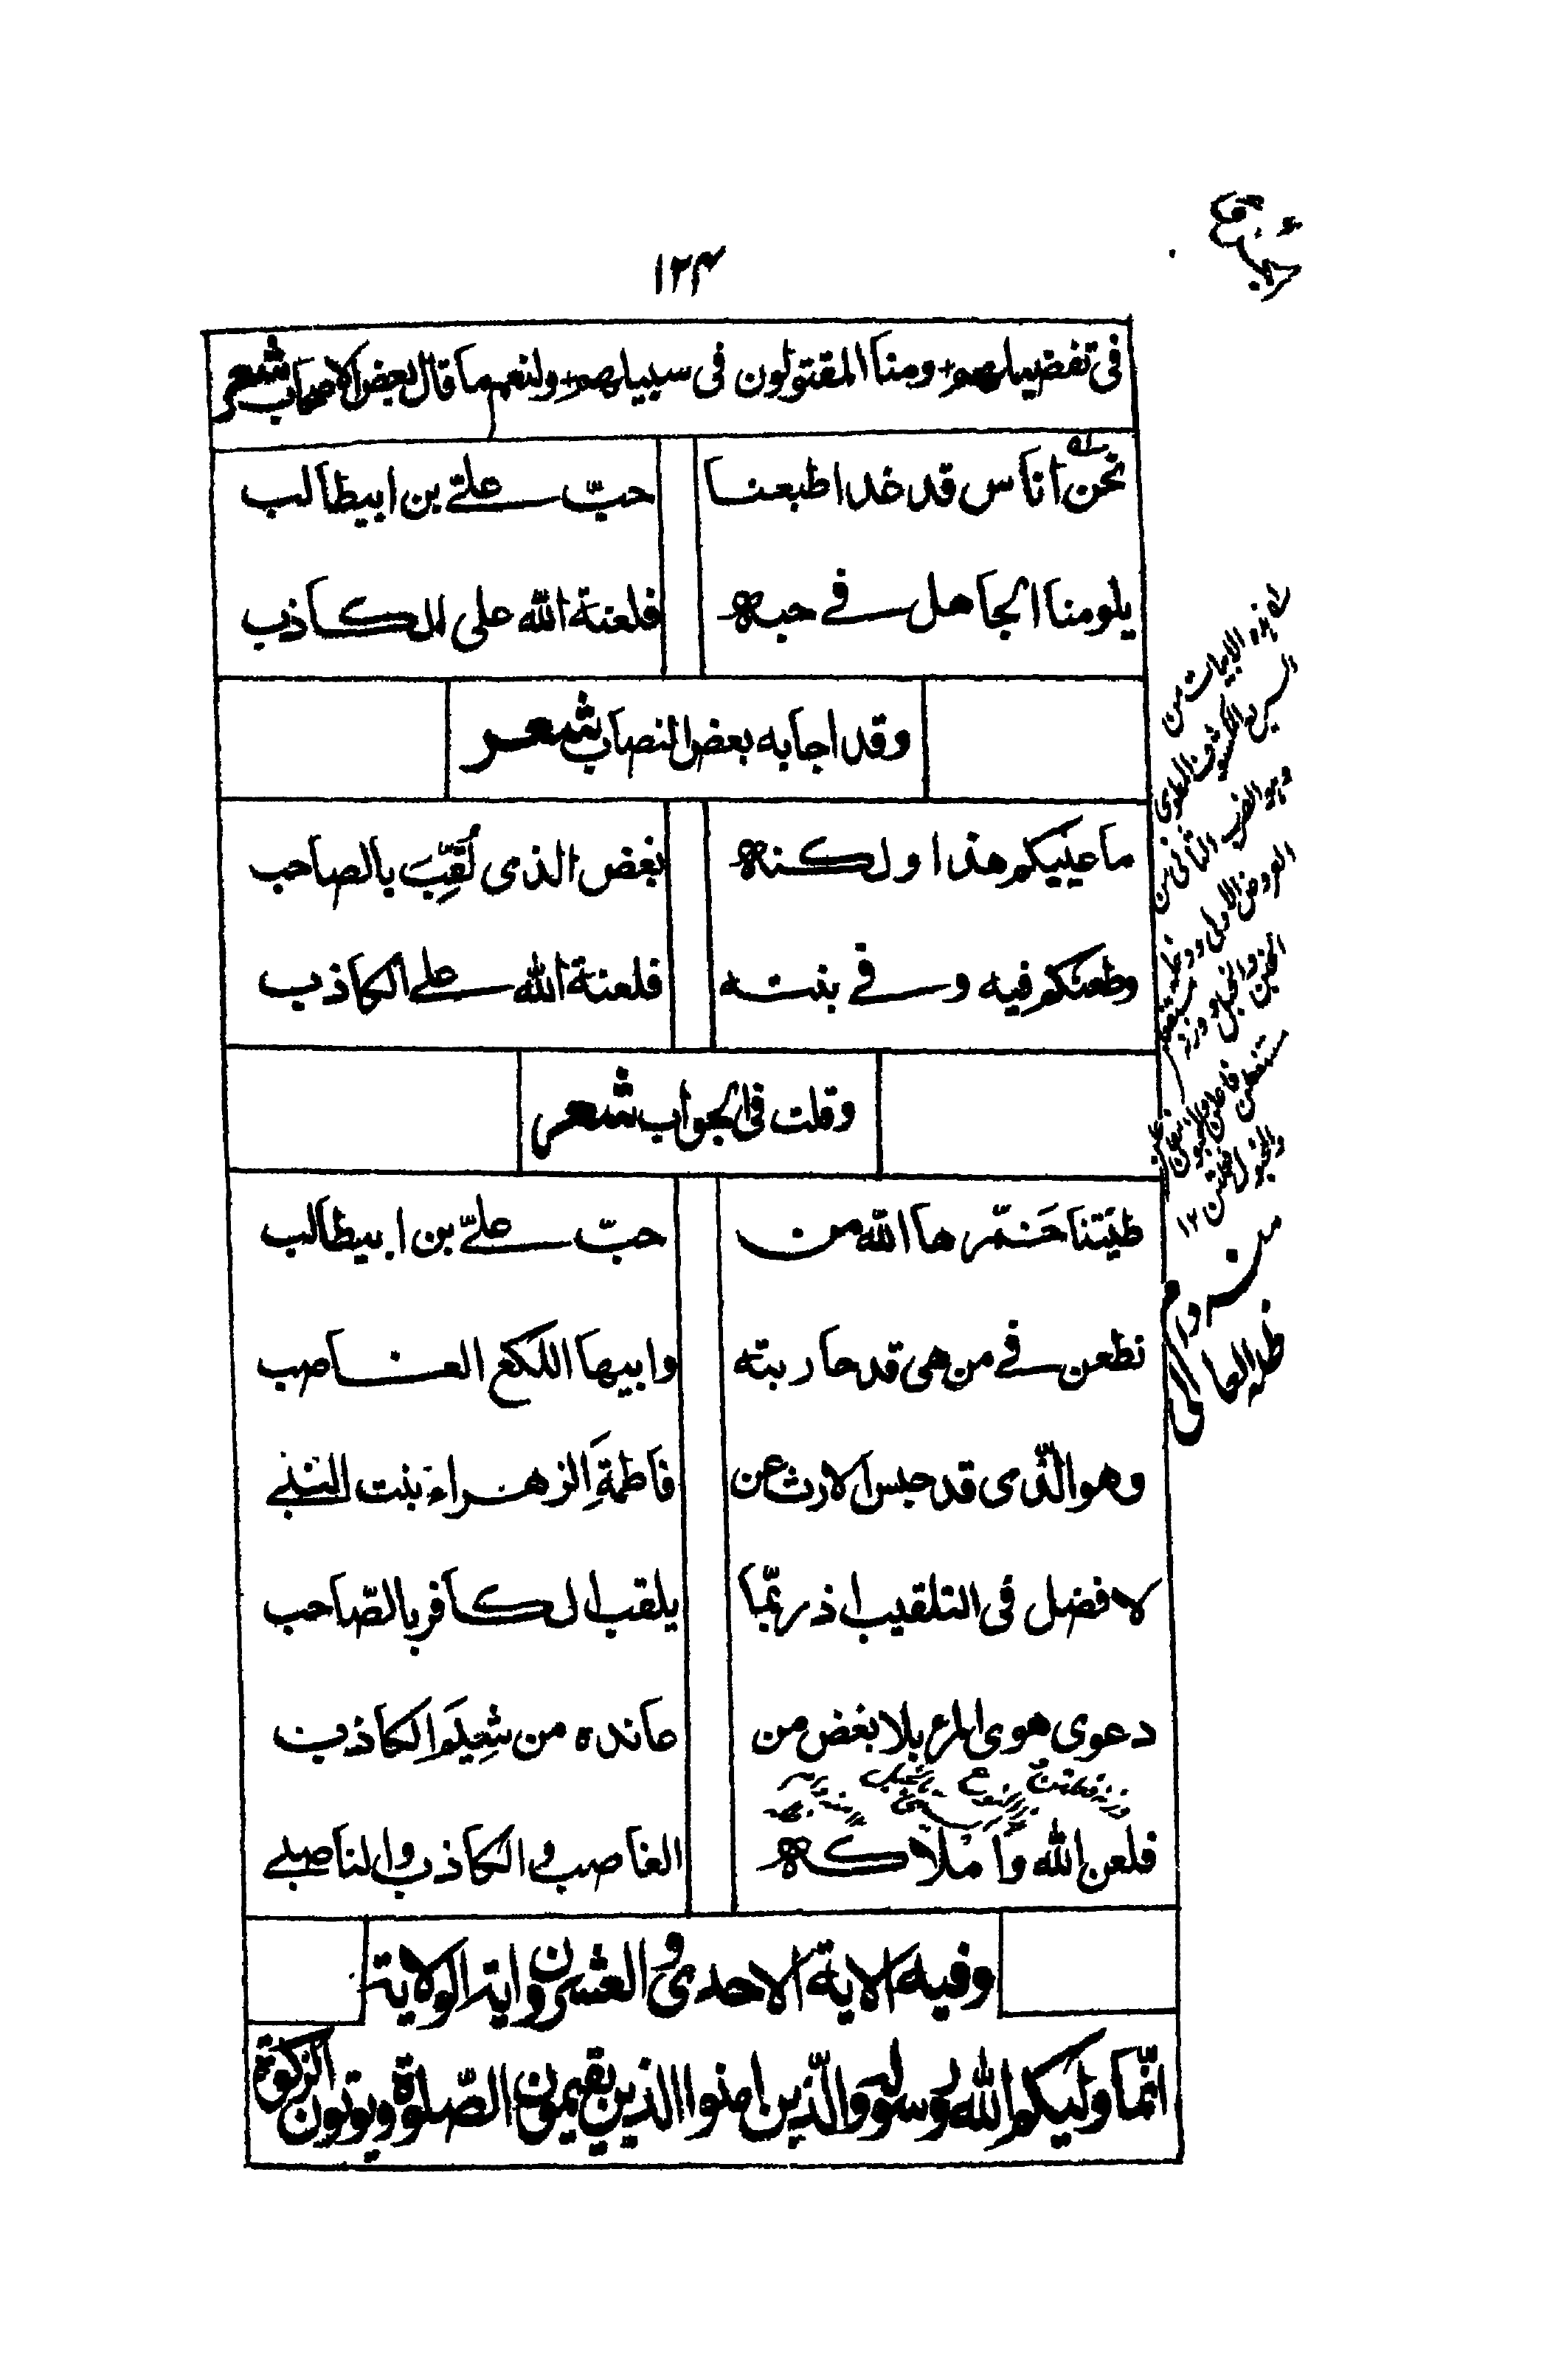 ١٢٤
فى تفضيلهم ومنا المقتولون فى سبيلهم ولنعم ما قال بعض الاصحاب شعر
نحن اناس قد غدا طبعنا حبّ علىّ بن ابيطالب
يلومنا الجاهل فى حبه فلعنة الله على الكاذب
وقد اجابه بعض النصاب شعر
ما عيبكم هذا ولكنه بغض الذى لُقِّبَ بالصاحب
وطعنكم فيه وفى بنته فلعنة الله على الكاذب
وقلت فى الجواب شعر
طينتنا خَمّرها الله من حبّ علىّ بن ابيطالب
نطعن فى من هى قد حاربته وابيها اللكع الغاصب
وهو الّذى قد حبس الارث عن فاطمةِ الزهراء بنت النبى
لا فضل فى التلقيب اذ ربّما يلقب الكافر بالصّاحب
دعوى هوى المرء بلا بغض من عانده من شِيَم الكاذب
فلعن الله واملاكه الغاصب والكاذب والناصبى
وفيه الاية الاحدى والعشرون اية الولاية
انّما وليكم الله ورسوله والّذين امنوا الذين يقيمون الصّلوة ويوتون الزكوة
هذه الابيات من
السريع المكسوف المطوى
وهو الضرب الثانى من
العروض الاولى
مستفعلن فاعلن
١٢
منه دام
ظله العالى